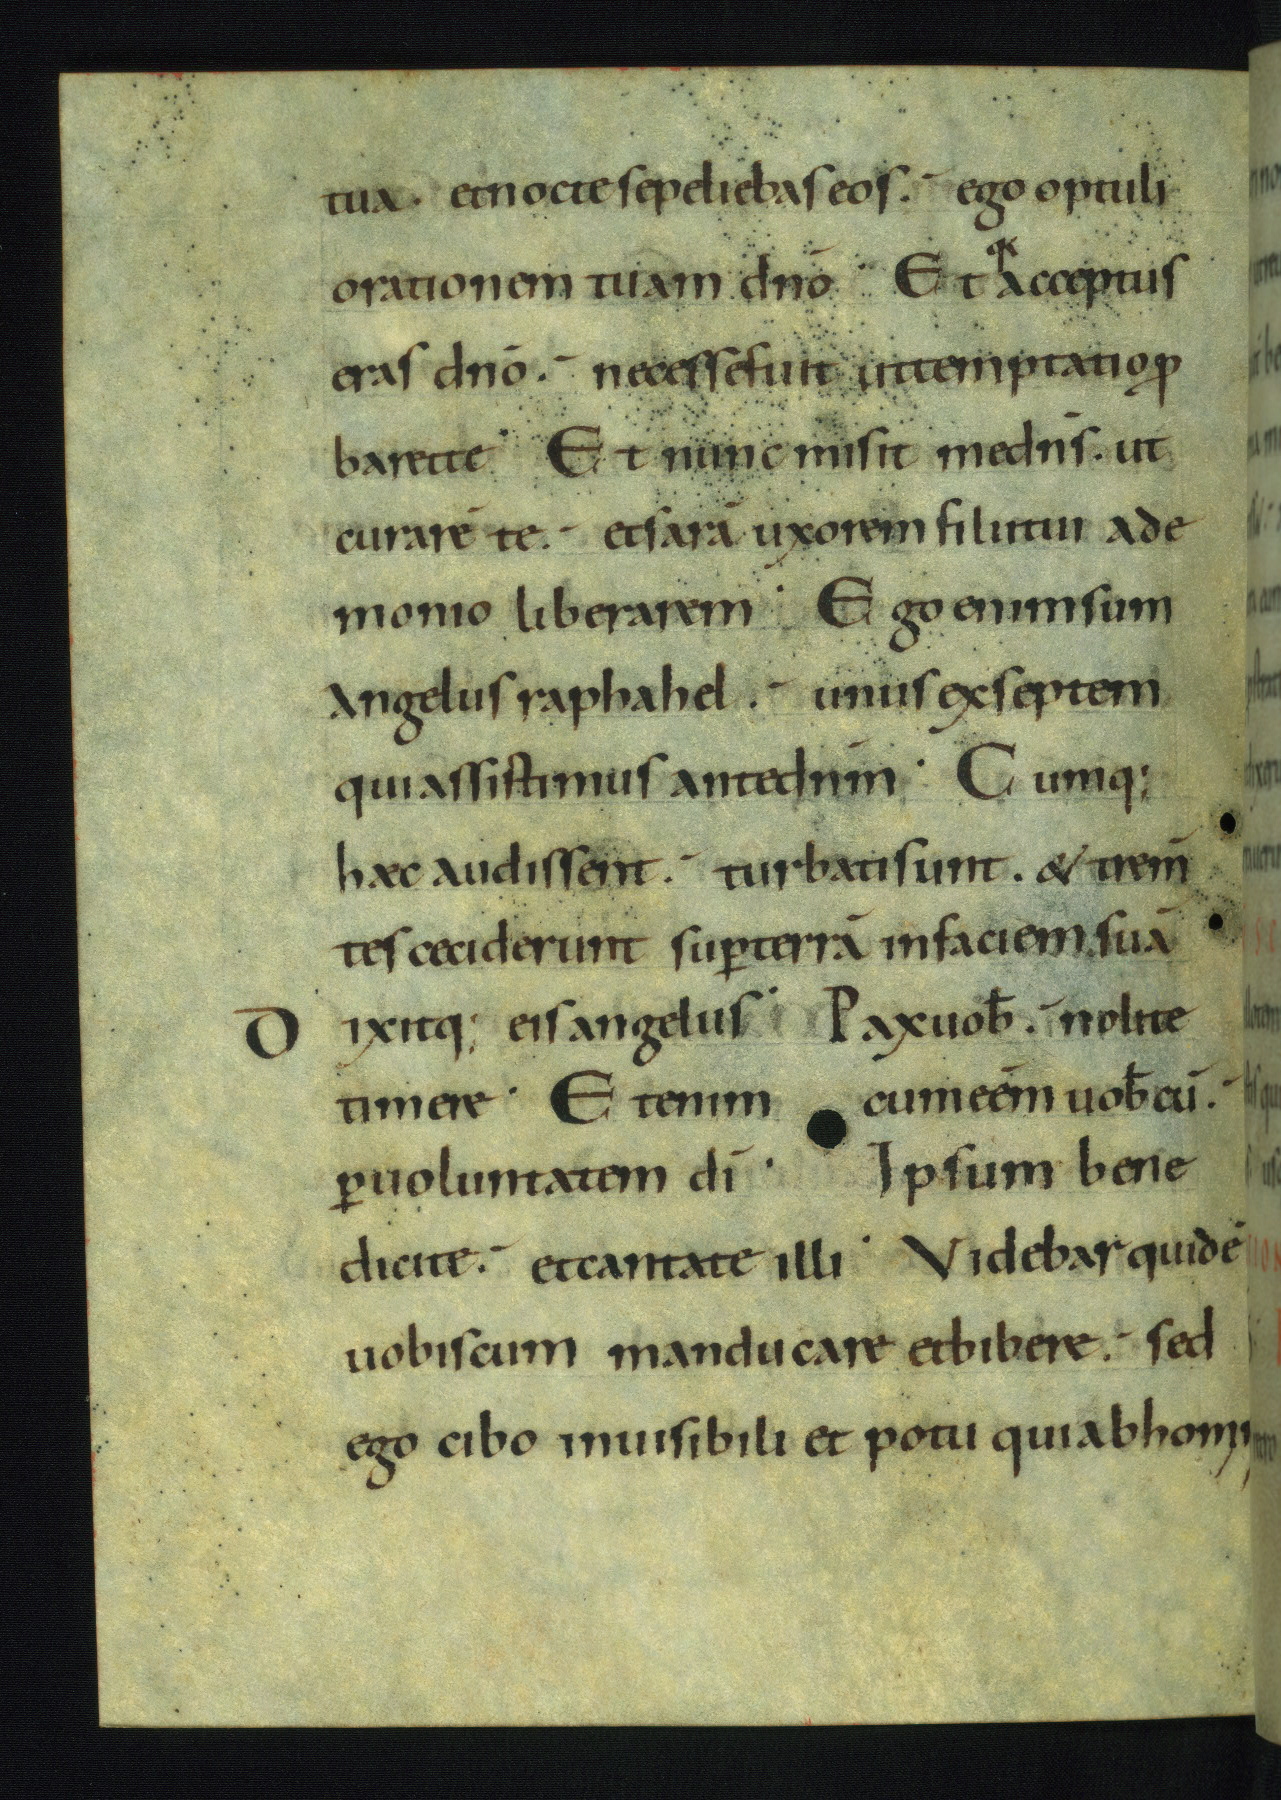 tua. et nocte sepeliebas eos. ego optuli
orationem tuam dnō Et qa acceptus
eras dnō. necesse fuit ut temptatio ꝓ
baret te Et nunc misit me dn̄s. ut
curarē te. et sarā uxorem filii tui a de
monio liberarem Ego enim sum
angelus raphahel. unus ex septem
qui assistimus ante dn̄m Cumq;
haec audissent. turbati sunt. & trem̄
tes ceciderunt suꝑ terrā in faciem suā
Dixitq; eis angelus Pax uob̄. nolite
timere Etenim cum eēm uob̄cū.
ꝑ uoluntatem dī Ipsum bene
dicite. et cantate illi Videbar quidē
uobiscum manducare et bibere. sed
ego cibo inuisibili et potu qui ab homi